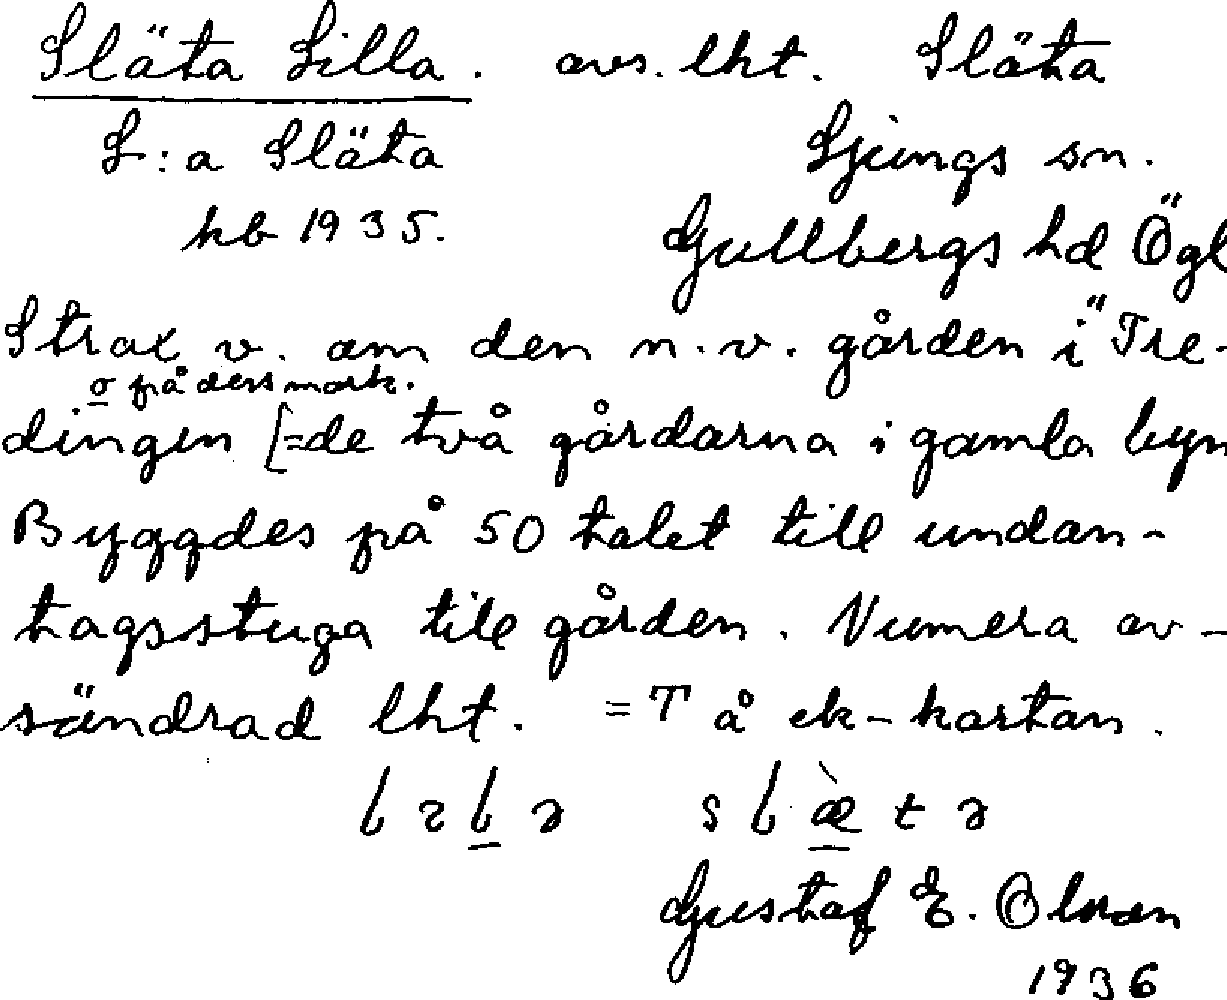 Släta Lilla. avs. lht. Släta
L:a Släta Ljungs sn.
kb 1935. Gullbergs hd Ögl
Strax v. om den n.v. gården i "Tre-
o på dess mark.
dingen [=de två gårdarna i gamla byn
Byggdes på 50 talet till undan-
tagsstuga till gården. Numera av-
söndrad lht. = T å ek-kartan.
Gustaf E. Olsson
1936